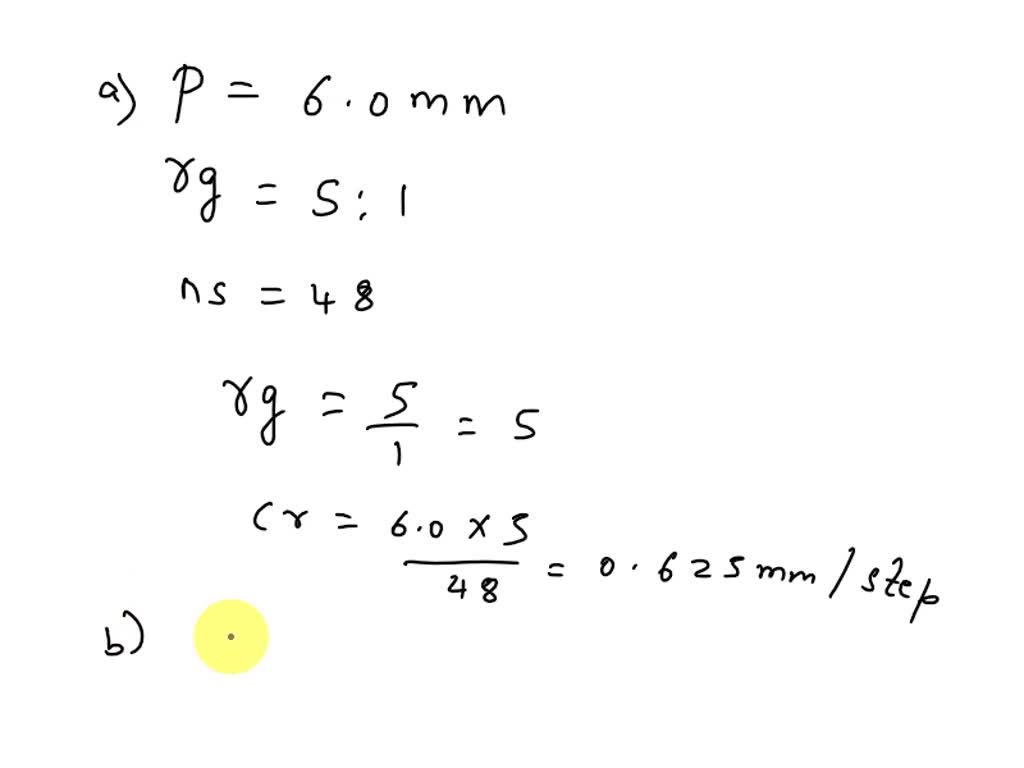 a) P = 6.0 mm
rg = 5:1
ns = 48
rg = 5/1 = 5
Cr = 6.0 x 5 / 48 = 0.625 mm/step
b)